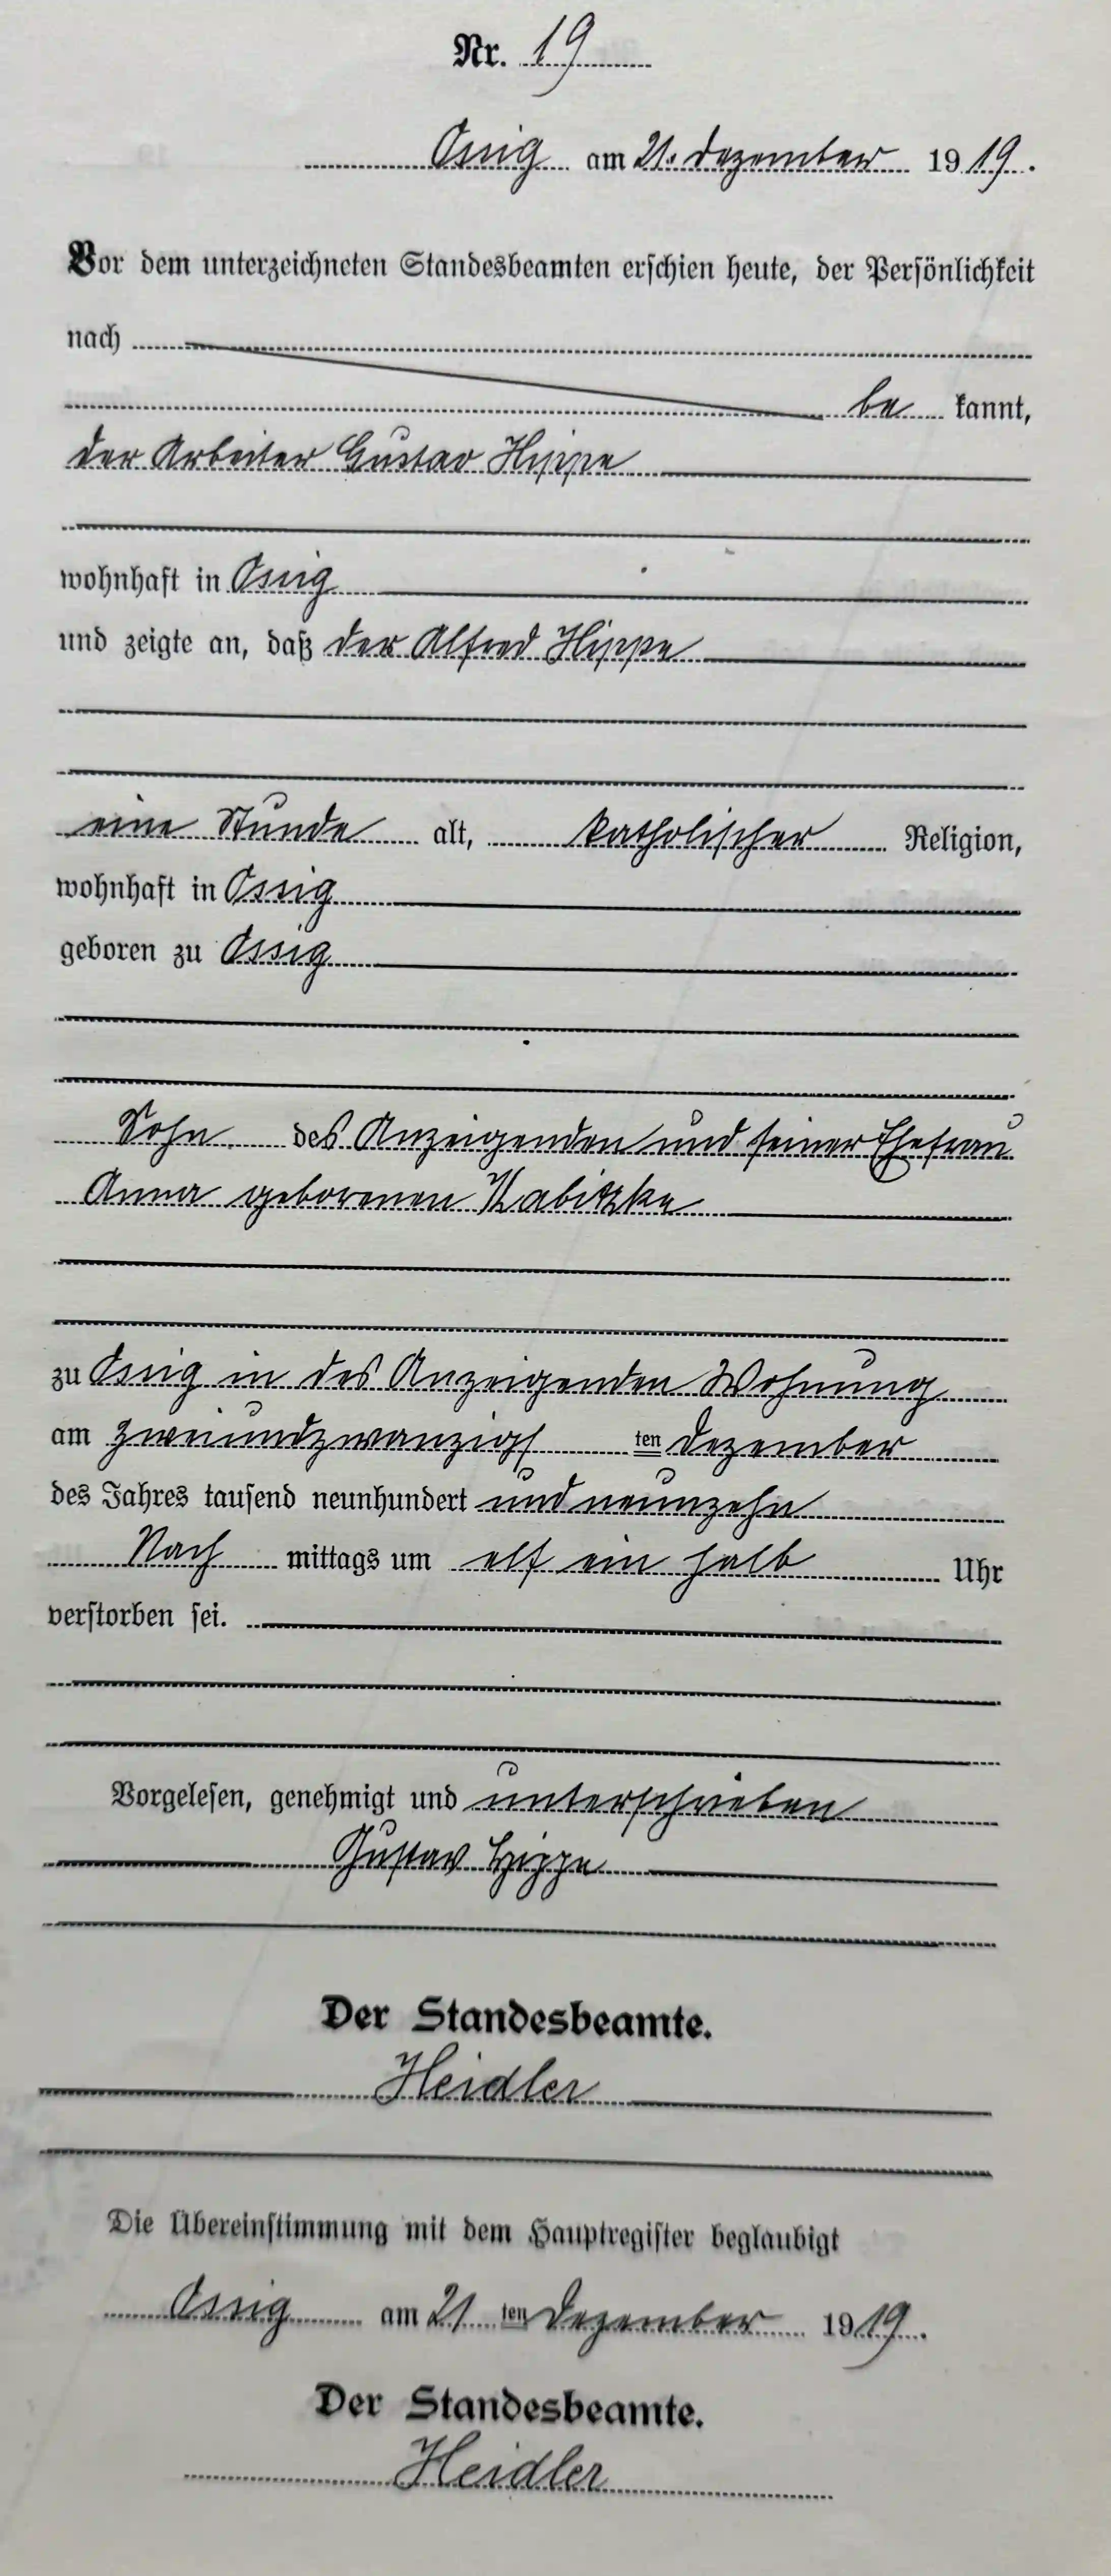 Nr. 19
Ossig am 21. Dezember 1919.
Vor dem unterzeichneten Standesbeamten erschien heute, der Persönlichkeit
nach
be kannt,
der Arbeiter Gustav Hippe
wohnhaft in Ossig
und zeigte an, daß der Alfred Hippe
eine Stunde alt, katholischer Religion,
wohnhaft in Ossig
geboren zu Ossig
Sohn des Anzeigenden und seiner Ehefrau
Anna geborenen Kabitzke
zu Ossig in des Anzeigenden Wohnung
am zweiundzwanzigs ten Dezember
des Jahres tausend neunhundert und neunzehn
Nach mittags um elf ein halb Uhr
verstorben sei.
Vorgelesen, genehmigt und unterschrieben
Gustav Hippe
Der Standesbeamte.
Heidler
Die Übereinstimmung mit dem Hauptregister beglaubigt
Ossig am 21 ten Dezember 1919.
Der Standesbeamte.
Heidler